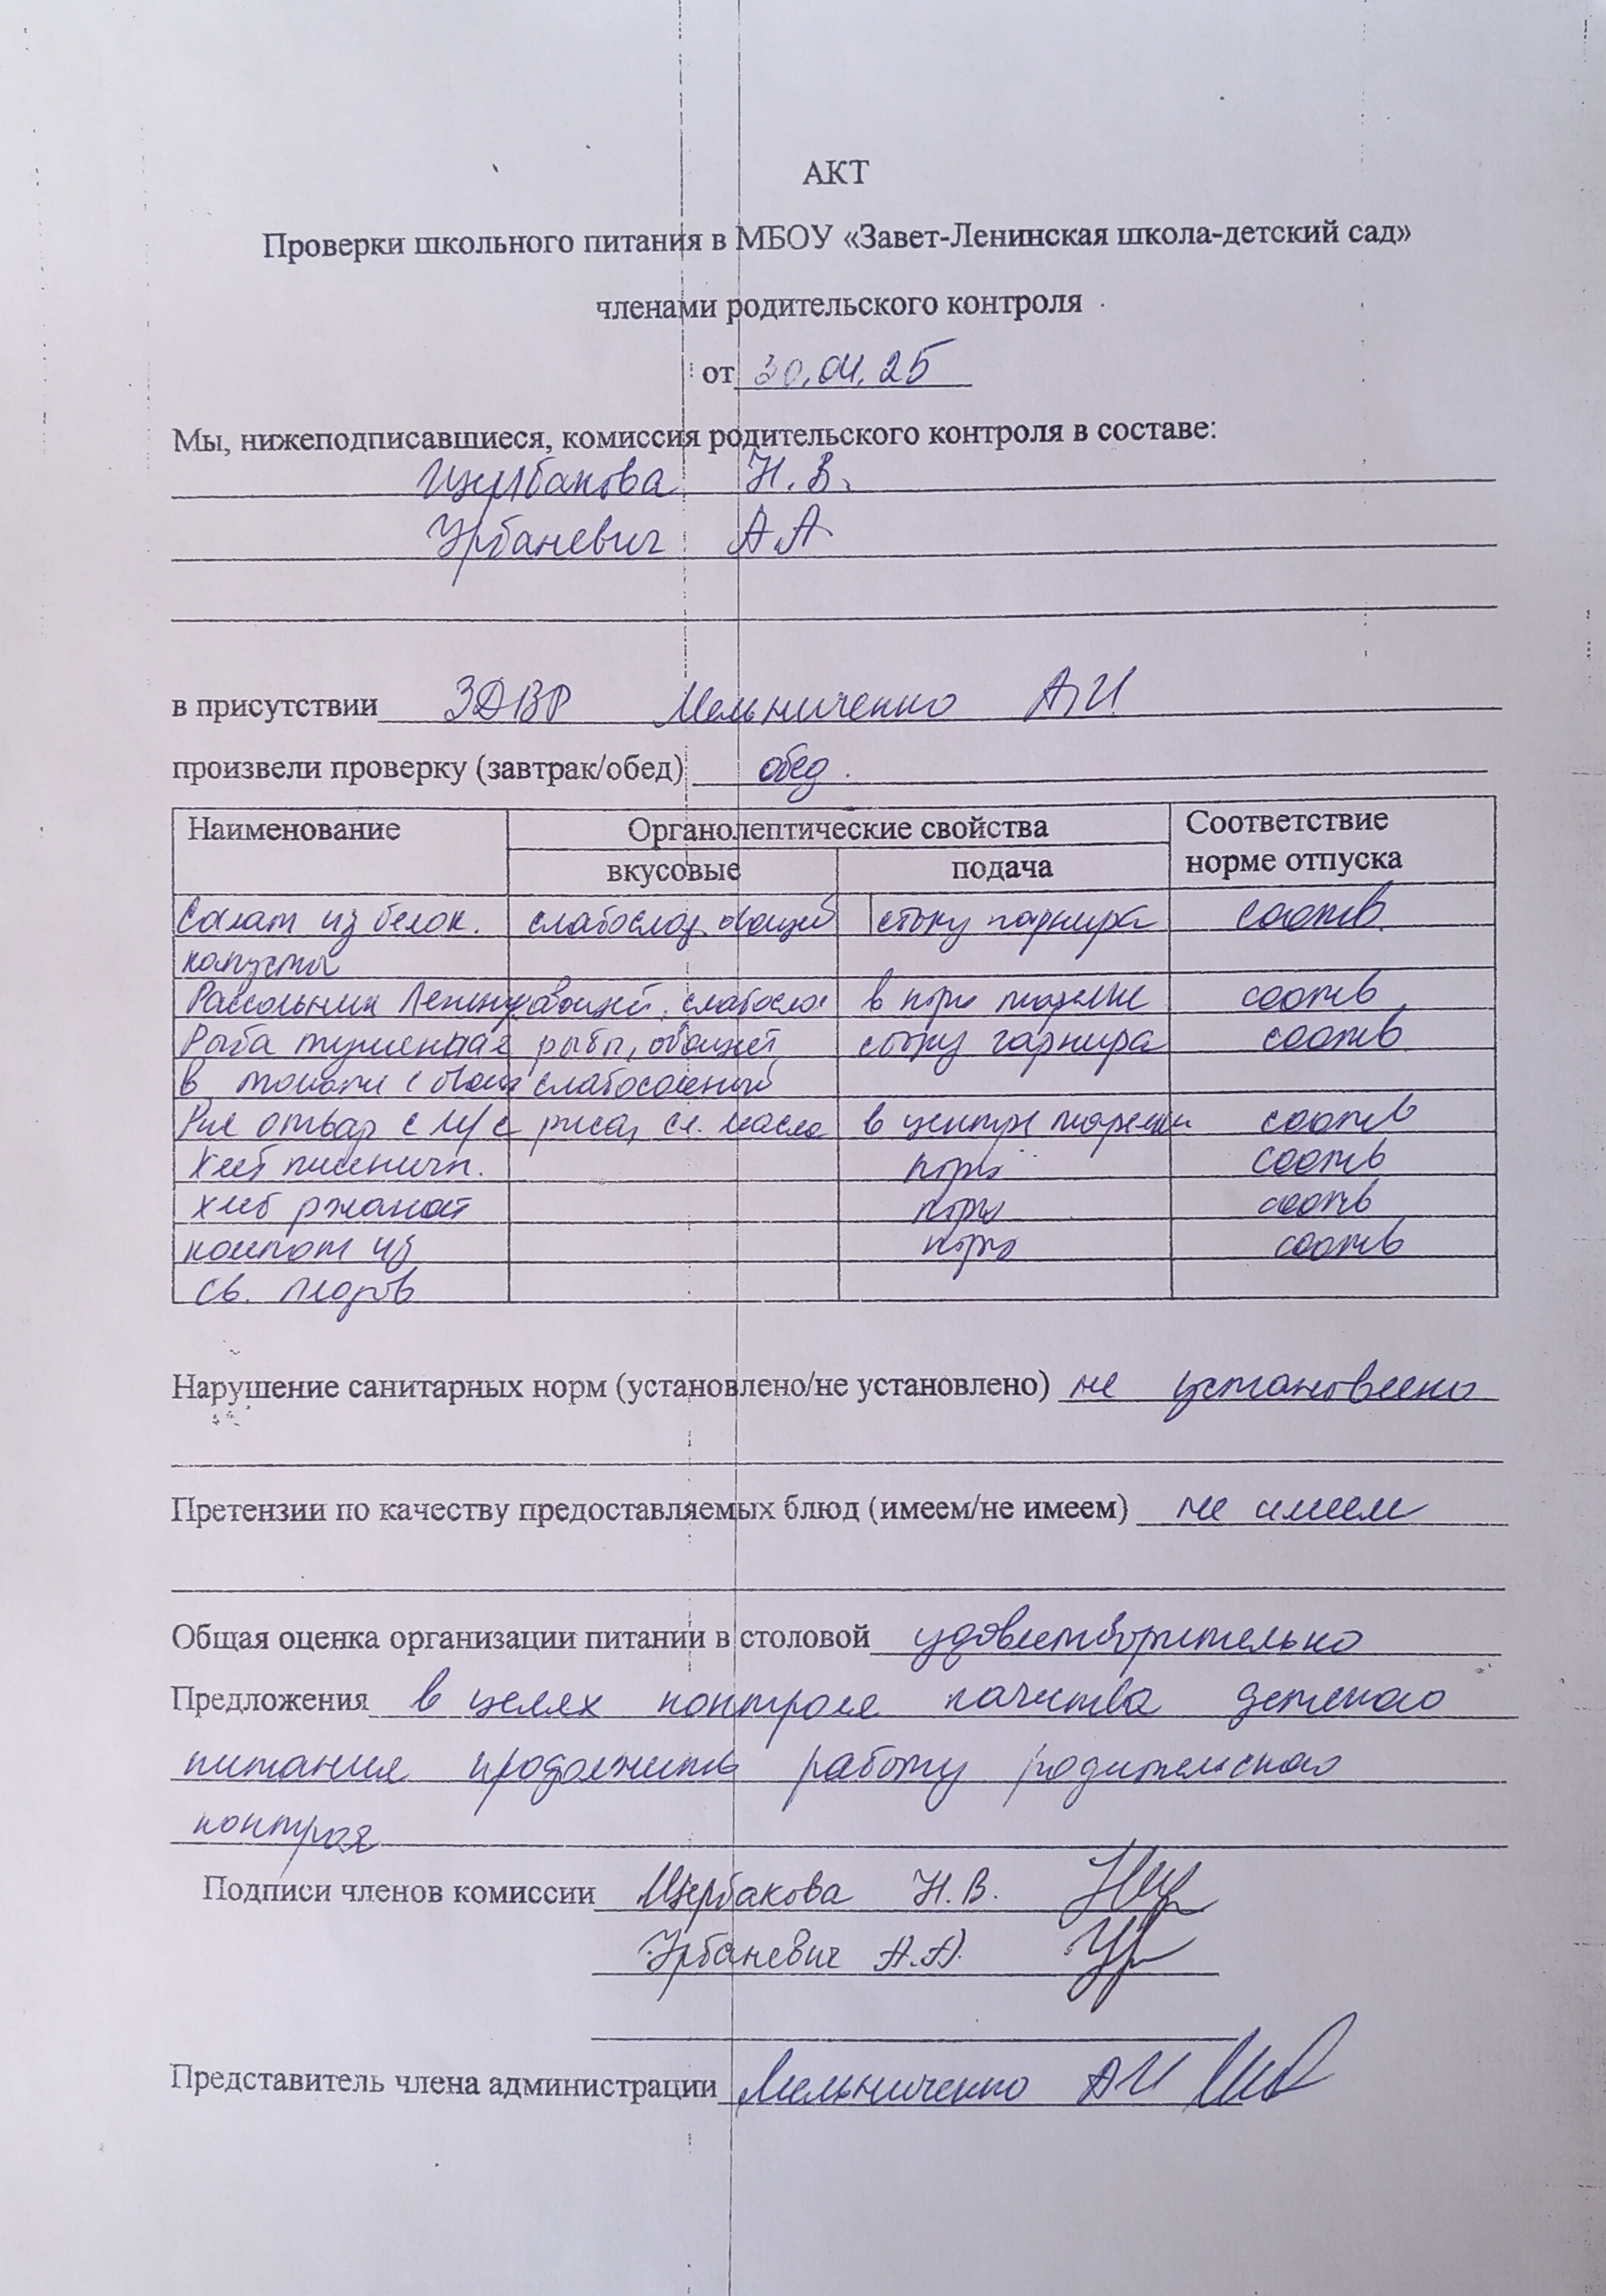 АКТ
Проверки школьного питания в МБОУ «Завет-Ленинская школа-детский сад»
членами родительского контроля
от 30.04.25
Мы, нижеподписавшиеся, комиссия родительского контроля в составе:
Щербакова Н.В.
Урбаневич А.А
в присутствии ЗДВР Мельниченко А.И
произвели проверку (завтрак/обед) обед.
Наименование Органолептические свойства Соответствие
вкусовые подача норме отпуска
Салат из белок. слабослад. овощей сбоку гарнира соотв.
капусты
Рассольник Ленингр овощей, слабосол в порц тарелке соотв
Рыба тушенная рыбы, овощей сбоку гарнира соотв
в томате с овощ слабосоленый
Рис отвар с м/с риса, сл. масла в центре тарелки соотв
Хлеб пшеничн. порц соотв
хлеб ржаной порц соотв
компот из порц соотв
св. плодов
Нарушение санитарных норм (установлено/не установлено) не установлено
Претензии по качеству предоставляемых блюд (имеем/не имеем) не имеем
Общая оценка организации питании в столовой удовлетворительно
Предложения в целях контроля качества детского
питания продолжить работу родительского
контроля
Подписи членов комиссии Щербакова Н.В.
Урбаневич А.А.
Представитель члена администрации Мельниченко АИ